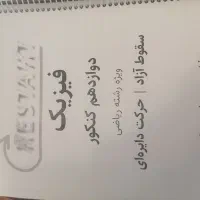 RESTART
فیزیک
دوازدهم کنکور
ویژه رشته ریاضی
سقوط آزاد | حرکت دایره‌ای